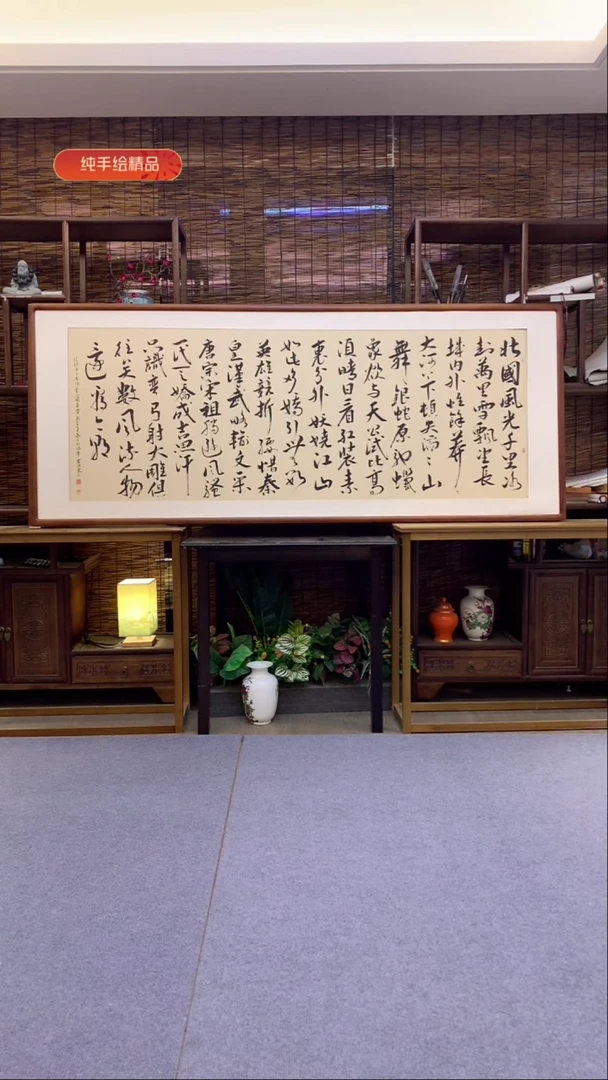 纯手绘精品
北國風光千里冰
封萬里雪飄望長
城内外惟餘莽々
大河上下頓失滔々山
舞銀蛇原馳蠟
象欲与天公試比高
須晴日看紅裝素
裹分外妖嬈江山
如此多嬌引無數
英雄競折腰惜秦
皇漢武略輸文采
唐宗宋祖稍遜風騷
一代天驕成吉思汗
只識彎弓射大雕俱
往矣數風流人物
還看今朝